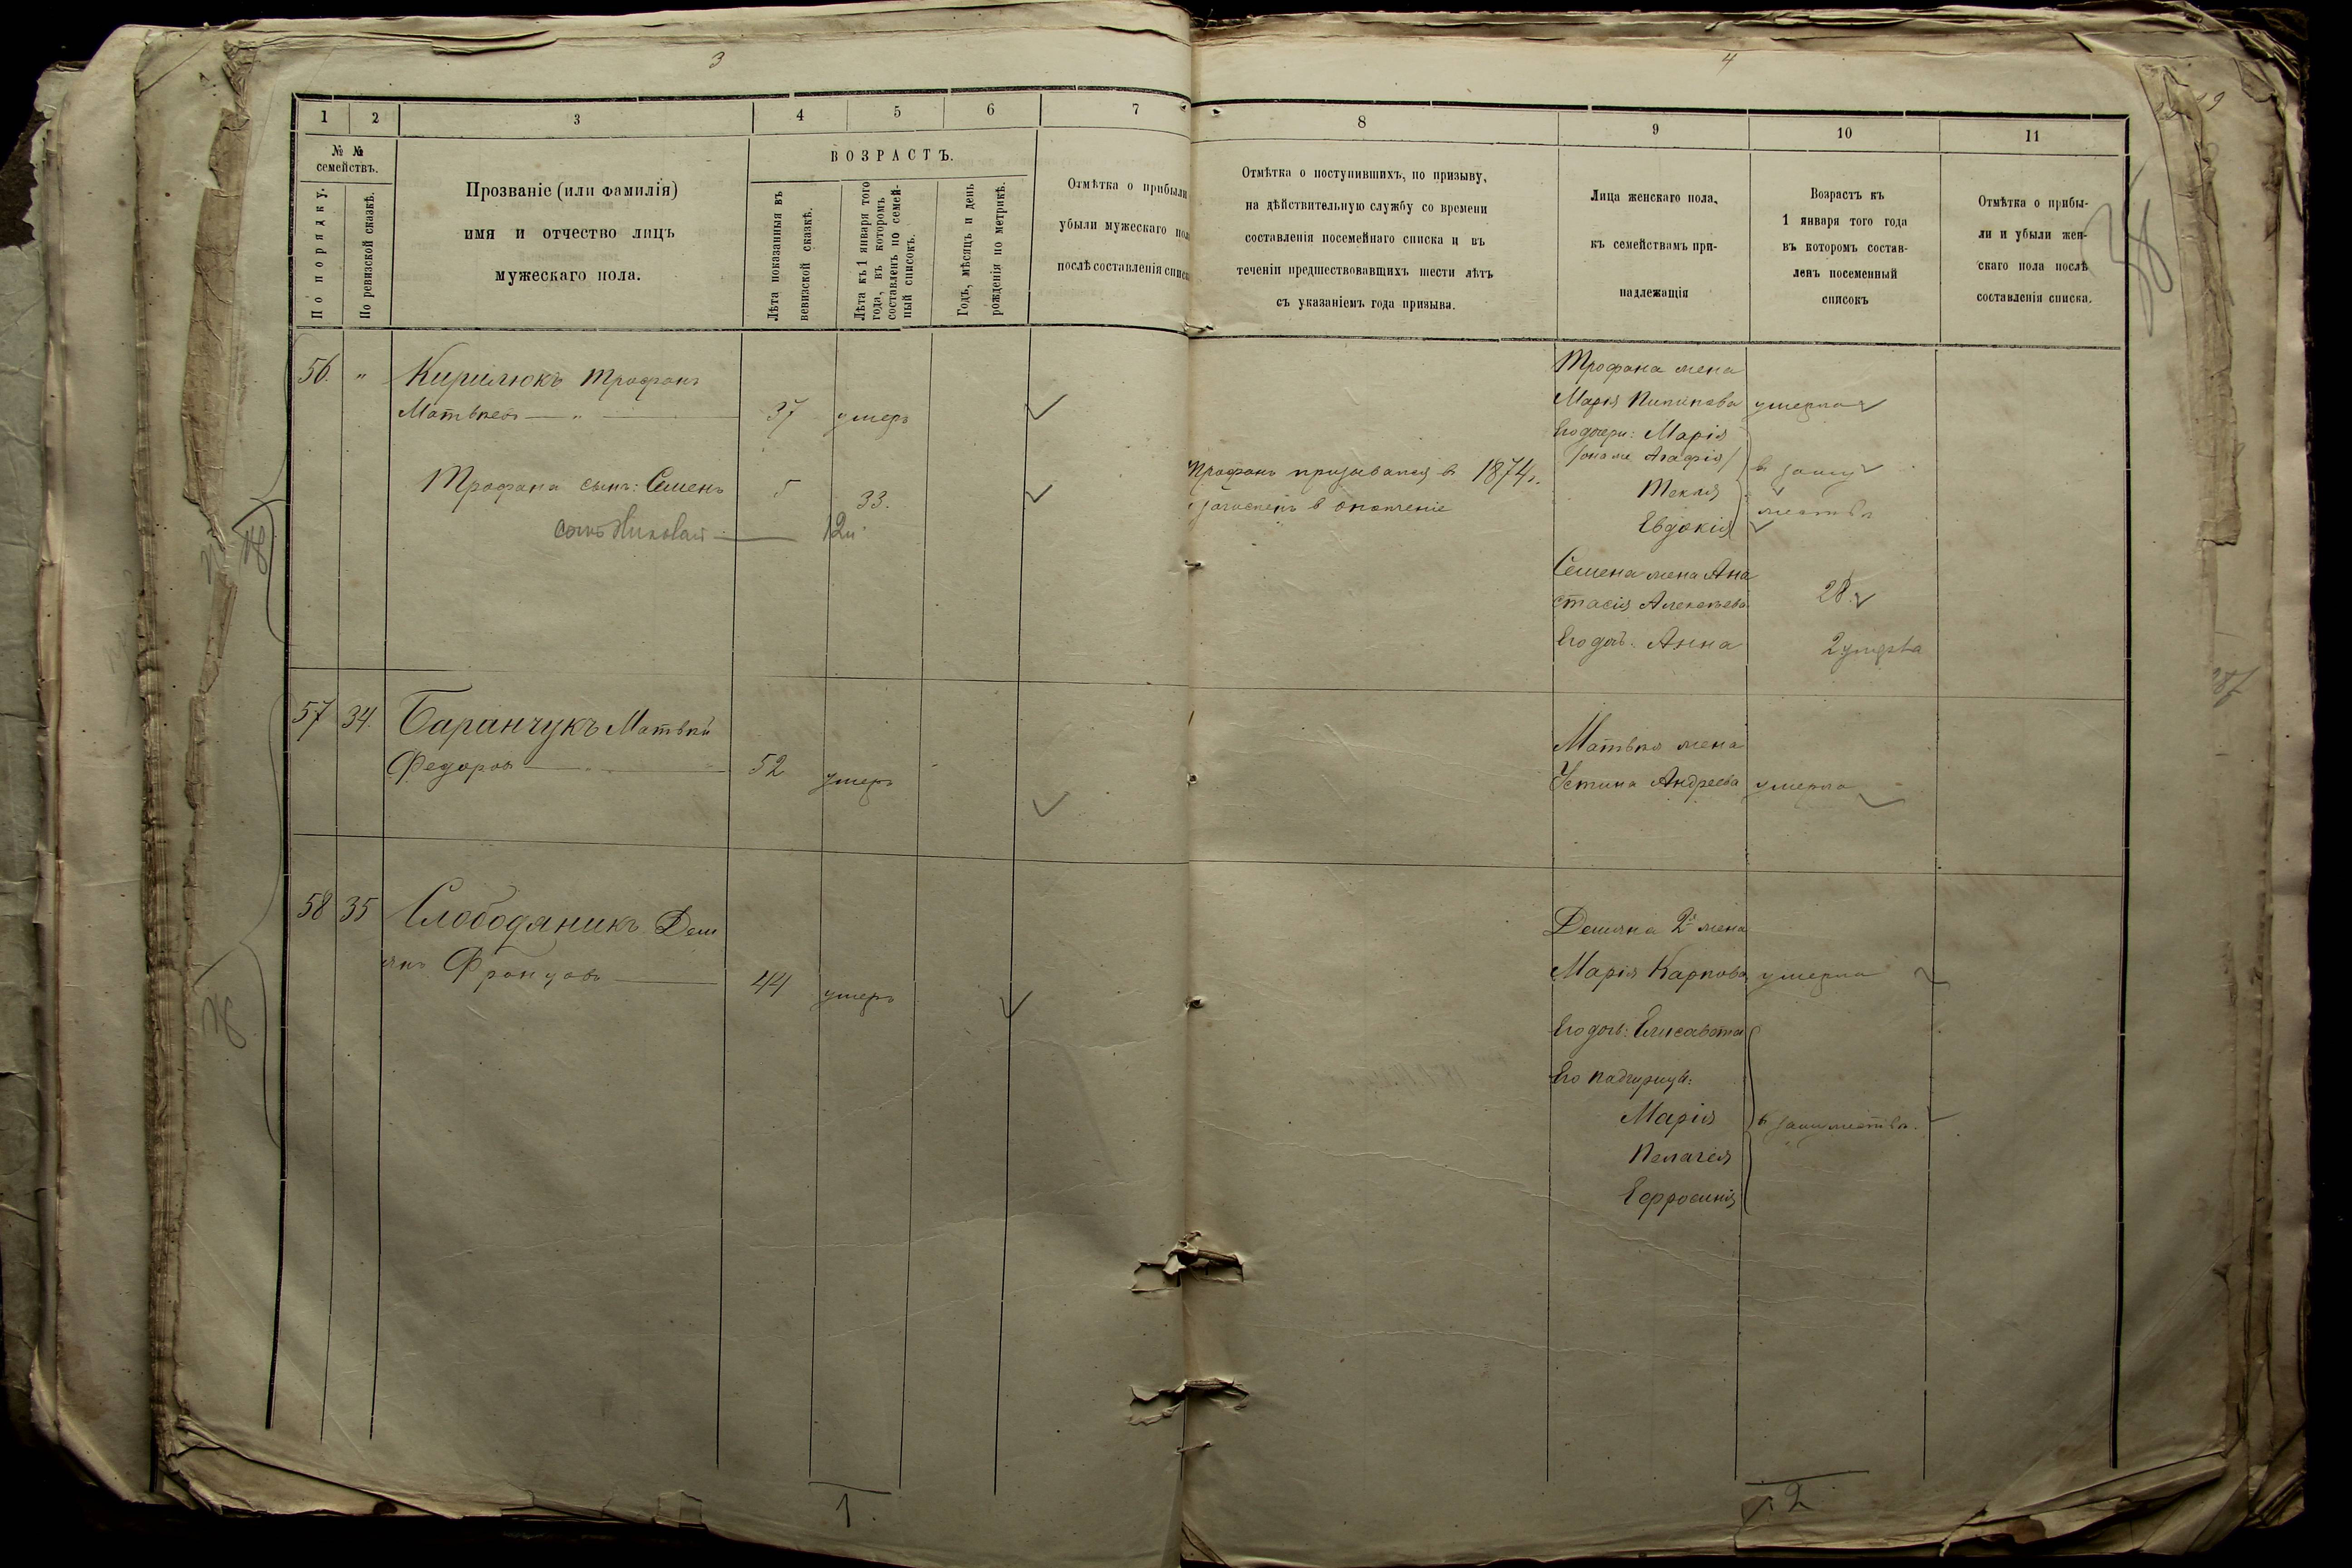 3
1 2 3 4 5 6 7
№ №
семействъ.
По порядку.
По ревизской сказкѣ.
Прозваніе (или фамилія)
имя и отчество лицъ
мужескаго пола.
ВОЗРАСТЪ.
Лѣта показанныя въ
ревизской сказкѣ.
Лѣта къ 1 января того
года, въ которомъ
составленъ по семей-
ный списокъ.
Годъ, мѣсяцъ и день
рожденія по метрикѣ.
Отмѣтка о прибыли
убыли мужескаго пол
послѣ составленія списк
56. " Кирилюкъ Трофимъ
Матвѣевъ — " — 37 умеръ
Трофима сынъ: Семенъ 5 33.
сынъ Николай — 12
57 34. Баранчукъ Матвѣй
Федоровъ — " — 52 умеръ
58 35 Слободяникъ Деми
янъ Францовъ — 44 умеръ
1.
4
8 9 10 11
Отмѣтка о поступившихъ, по призыву,
на дѣйствительную службу со времени
составленія посемейнаго списка и въ
теченіи предшествовавщихъ шести лѣтъ
съ указаніемъ года призыва.
Лица женскаго пола,
къ семействамъ при-
надлежащія
Возрастъ къ
1 января того года
въ которомъ состав-
ленъ посеменный
списокъ
Отмѣтка о прибы-
ли и убыли жен-
скаго пола послѣ
составленія списка.
Трофима жена
Марія умерла
Его дочери: Марія
(она же Агафія)
въ заму
Текля
жествѣ
Евдокія
призывался въ 1874г.
зачисленъ в ополченіе
Семена жена Ана
стасія Алексѣева 28.
Его дочь: Анна 2 умерла
Матвѣя жена
Устина Андреева умерла
Деміяна 2я жена
Марія Карпова умерла
Его дочь: Елисавета
Его падчерицы:
Марія в замужествѣ.
Пелагея
Ефросинія
2